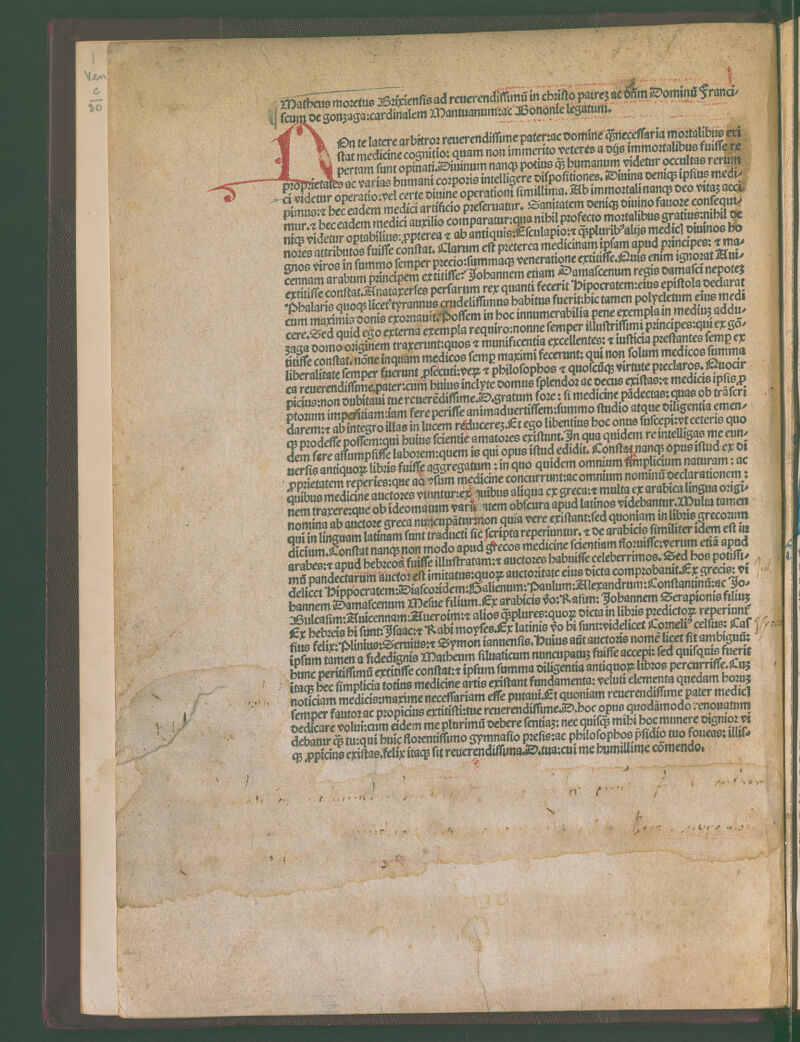 Matheus moretus Brixiensis ad reuerendissimū in christo patreꝫ ac dn̄m Dominū Franci⸗
scum de gonzaga:cardinalem Mantuanum:ac Bononie legatum.
NOn te latere arbitror reuerendissime pater:ac domine q̄ꝫ necessaria mortalibus exi
stat medicine cognitio: quam non immerito veteres a dijs immortalibus fuisse re
pertam sunt opinati.Diuinum nanqꝫ potius q̄ꝫ humanum videtur occultas rerum
proprietates ac varias humani corporis intelligere dispositiones. Diuina deniqꝫ ipsius medi⸗
ci videtur operatio:vel certe diuine operationi simillima. Ab immortali nanqꝫ deo vitaꝫ acci
pimus:⁊ hec eadem medici artificio preseruatur. Sanitatem deniqꝫ diuino fauore consequi⸗
mur.⁊ hec eadem medici auxilio comparatur:qua nihil profecto mortalibus gratius:nihil de
niqꝫ videtur optabilius:ꝓpterea ⁊ ab antiquis:Esculapio:⁊ q̄ꝫpluribꝰ alijs medicꝭ diuinos ho
nores attributos fuisse constat. Clarum est preterea medicinam ipsam apud principes: ⁊ ma⸗
gnos viros in summo semper precio:summaqꝫ veneratione extitisse. Quis enim ignorat Aui⸗
cennam arabum principem extitisse? Johannem etiam Damascenum regis damasci nepoteꝫ
extitisse constat. Anataxerses persarum rex quanti fecerit Hipocratem:eius epistola declarat
Phalaris quoqꝫ licet tyrannus crudelissimus habitus fuerit:hic tamen polycletum eius medi
cum maximis donis exornauit. Possem in hoc innumerabilia pene exempla in mediuꝫ addu⸗
cere. Sed quid ego externa exempla requiro:nonne semper illustrissimi principes:qui ex gō⸗
zaga domo originem traxerunt:quos ⁊ munificentia excellentes: ⁊ iusticia prestantes semꝑ ex
titisse constat.nōne inquam medicos semꝑ maximi fecerunt: qui non solum medicos summa
liberalitate semper fuerunt ꝓsecuti:veꝝ ⁊ philosophos ⁊ quoscūqꝫ virtute preclaros. Quocir
ca reuerendissime pater:cum huius inclyte domus splendor ac decus existas:⁊ medicis ipsis ꝓ
picius:non dubitaui tue reuerēdissime.D.gratum fore: si medicine pādectas: quas ob trāscri
ptorum imperitiam:iam fere perisse animaduertissem:summo studio atque diligentia emen⸗
darem:⁊ ab integro illas in lucem reducereꝫ. Et ego libentius hoc onus suscepi:vt ceteris quo
qꝫ prodesse possem:qui huius scientie amatores existunt. In qua quidem re intelligas me eun⸗
dem fere assumpsisse laborem:quem is qui opus istud edidit. Constat nanqꝫ opus istud ex di
uersis antiquoꝝ libris fuisse aggregatum : in quo quidem omnium simplicium naturam : ac
ꝓprietatem reperies:que ad vsum medicine concurrunt:ac omnium nominū declarationem :
quibus medicine auctores vtuntur:ex quibus aliqua ex greca:⁊ multa ex arabica lingua origi⸗
nem traxere:que ob ideomatum varietatem obscura apud latinos videbantur. Multa tamen
nomina ab auctore greca nuncupātur:non quia vere existant:sed quoniam in libris grecorum
qui in linguam latinam sunt traducti sic scripta reperiuntur. ⁊ de arabicis similiter idem est iu
dicium. Constat nanqꝫ non modo apud grecos medicine scientiam floruisse:verum etiā apud
arabes:⁊ apud hebreos fuisse illustratam:⁊ auctores habuisse celeberrimos. Sed hos potissi⸗
mū pandectarum auctor est imitatus:quoꝝ auctoritate eius dicta comprobauit. Ex grecis: vi
delicet Hippocratem:Diascoridem:Galienum:Paulum:Alexandrum:Constantinū:ac Jo⸗
hannem Damascenum Mesue filium. Ex arabicis v̄o:Rasim: Johannem Serapionis filiuꝫ
Bulcasim:Auicennam:Aueroim:⁊ alios q̄ꝫplures:quoꝝ dicta in libris predictoꝝ reperiunt᷑
Ex hebreis hi sunt:Isaac:⁊ Rabi moyses.Ex latinis v̄o hi sunt:videlicet Cornelꝰ celsus: Cas
sius felix:Plinius:Seruius:⁊ Symon ianuensis. Huius aūt auctoris nomē licet sit ambiguū:
ipsum tamen a fidedignis Matheum siluaticum nuncupatuꝫ fuisse accepi: sed quisquis fuerit
hunc peritissimū extitisse constat:⁊ ipsum summa diligentia antiquoꝝ libros percurrisse. Cuꝫ
itaqꝫ hec simplicia totius medicine artis existant fundamenta: veluti elementa quedam horuꝫ
noticiam medicis:maxime necessariam esse putaui. Et quoniam reuerendissime pater medicꝭ
semper fautor ac propicius extitisti:tue reuerendissime.D.hoc opus quodāmodo renouatum
dedicare volui:cum eidem me plurimū debere sentiaꝫ: nec quisqꝫ mihi hoc munere dignior vi
debatur q̄ꝫ tu:qui huic florentissimo gymnasio presis:ac philosophos p̄sidio tuo foueas: illis⸗
qꝫ ꝓpicius existas.felix itaqꝫ sit reuerendissima.D.tua:cui me humillime cōmendo.
1
Ven
c
80